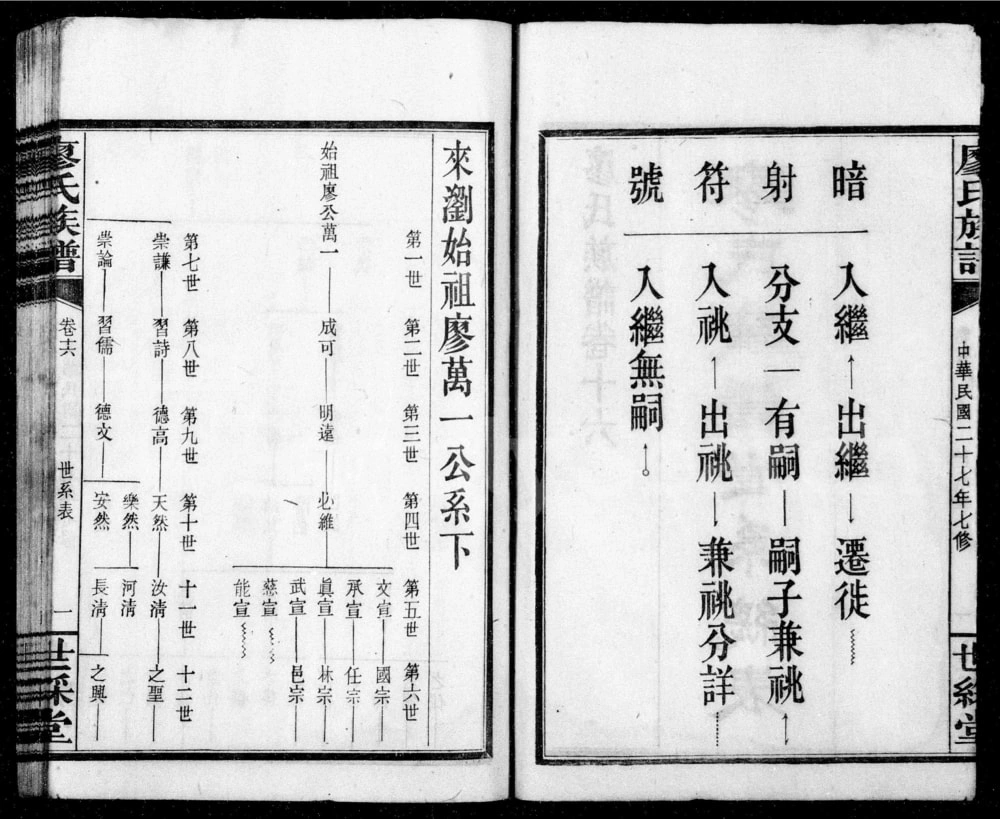 廖氏族
中華民國二十七年七修
世綵堂
暗射符號
入繼 出繼 遷徙
分支 有嗣 嗣子兼祧
入祧 出祧 兼祧分詳
入繼無嗣
來瀏始祖廖萬一公系下
第一世 第二世 第三世 第四世 第五世 第六世
始祖廖公萬一 成可 明遠 必維
文宣 國宗
承宣 任宗
眞宣 林宗
武宣 邑宗
慈宣
能宣
第七世 第八世 第九世 第十世 十一世 十二世
崇謙 習詩 德高 天然 汝清 之聖
崇論 習儒 德文
樂然 河清
安然 長清 之興
廖氏族譜
卷十六
世系表
一
世綵堂